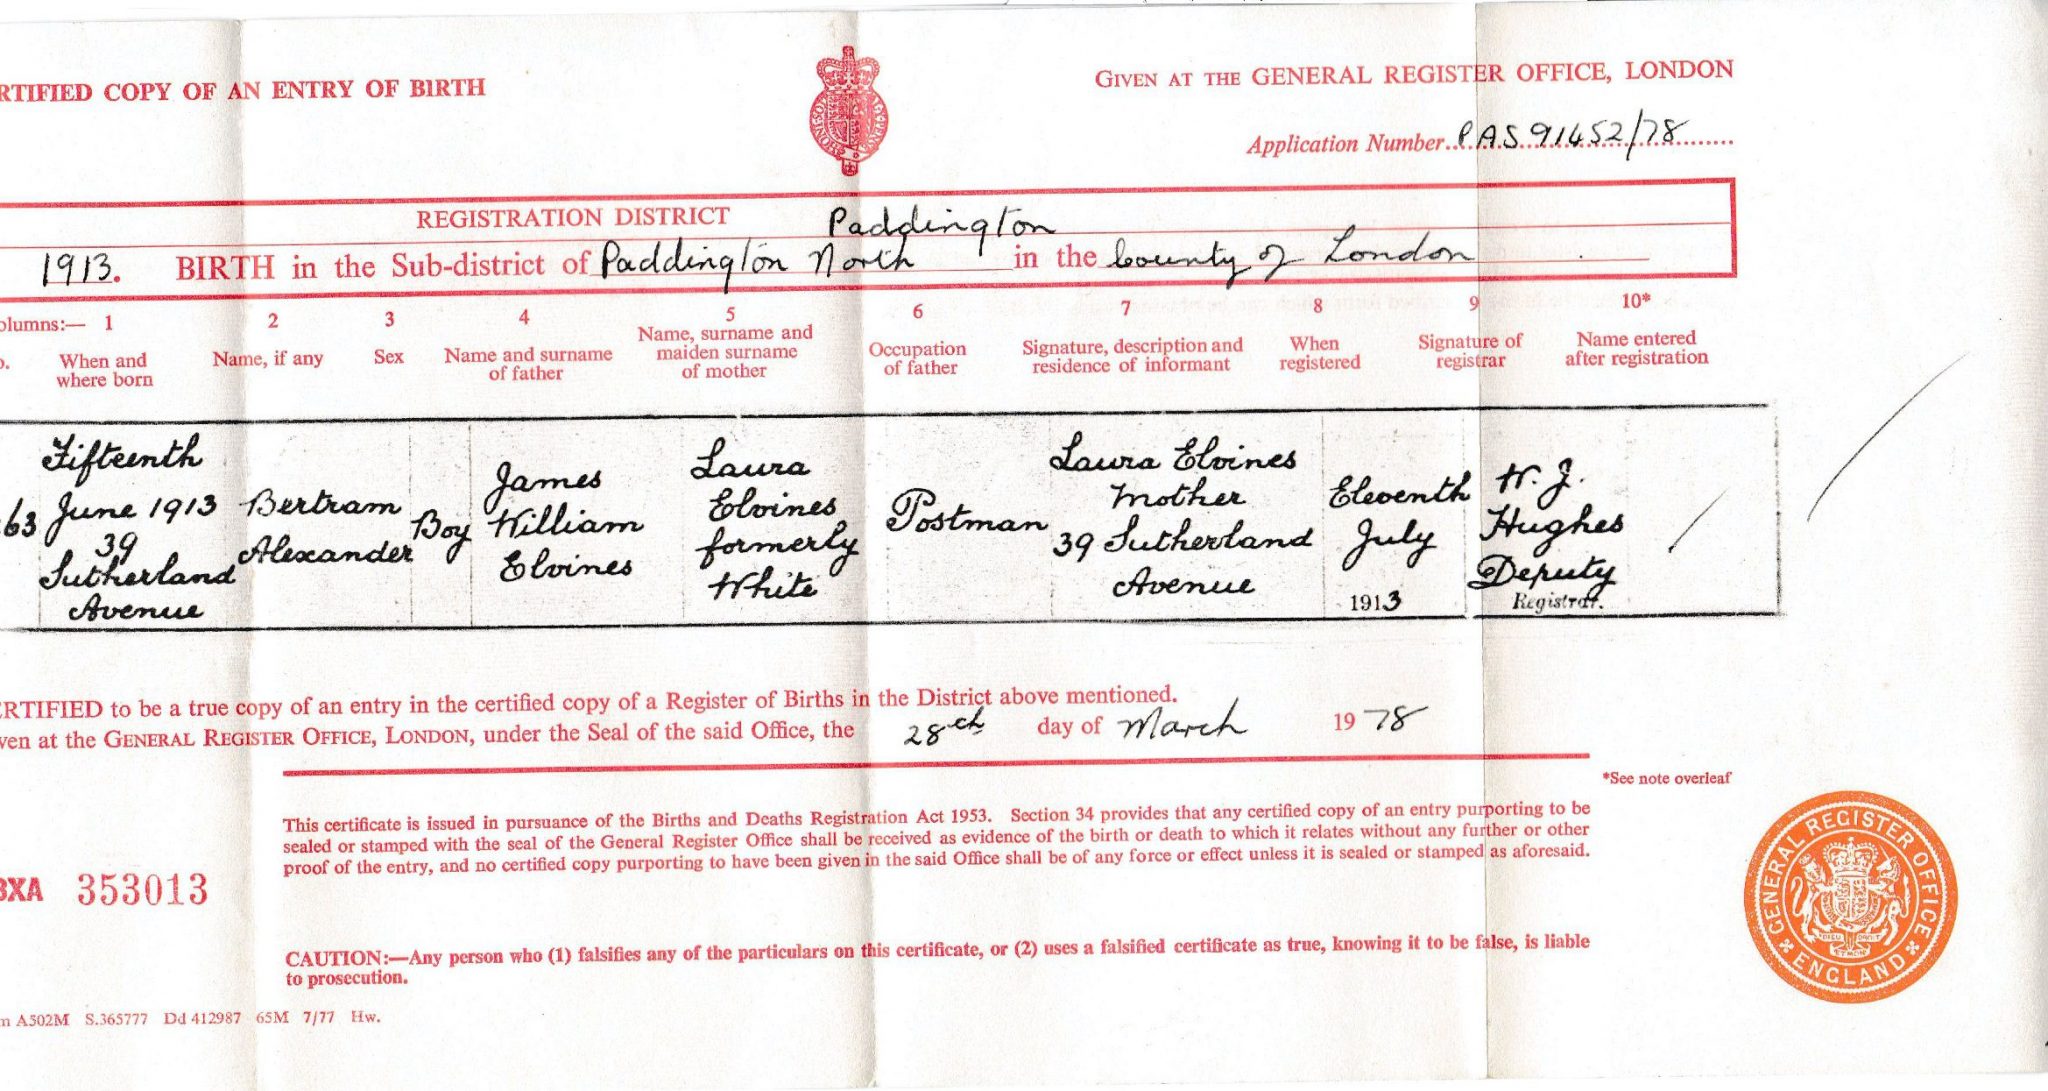 RTIFIED COPY OF AN ENTRY OF BIRTH
GIVEN AT THE GENERAL REGISTER OFFICE, LONDON
Application Number PAS 91452/78
REGISTRATION DISTRICT Paddington
1913. BIRTH in the Sub-district of Paddington North in the County of London
olumns:— 1 2 3 4 5 6 7 8 9 10*
o. When and where born
Name, if any
Sex
Name and surname of father
Name, surname and maiden surname of mother
Occupation of father
Signature, description and residence of informant
When registered
Signature of registrar
Name entered after registration
63
Fifteenth
June 1913
39
Sutherland
Avenue
Bertram
Alexander
Boy
James
William
Elvines
Laura
Elvines
formerly
White
Postman
Laura Elvines
Mother
39 Sutherland
Avenue
Eleventh
July
1913
H. J.
Hughes
Deputy
Registrar.
ERTIFIED to be a true copy of an entry in the certified copy of a Register of Births in the District above mentioned.
ven at the GENERAL REGISTER OFFICE, LONDON, under the Seal of the said Office, the 28th day of March 1978
*See note overleaf
This certificate is issued in pursuance of the Births and Deaths Registration Act 1953. Section 34 provides that any certified copy of an entry purporting to be
sealed or stamped with the seal of the General Register Office shall be received as evidence of the birth or death to which it relates without any further or other
proof of the entry, and no certified copy purporting to have been given in the said Office shall be of any force or effect unless it is sealed or stamped as aforesaid.
BXA 353013
CAUTION:—Any person who (1) falsifies any of the particulars on this certificate, or (2) uses a falsified certificate as true, knowing it to be false, is liable
to prosecution.
m A502M S.365777 Dd 412987 65M 7/77 Hw.
GENERAL REGISTER OFFICE
ENGLAND